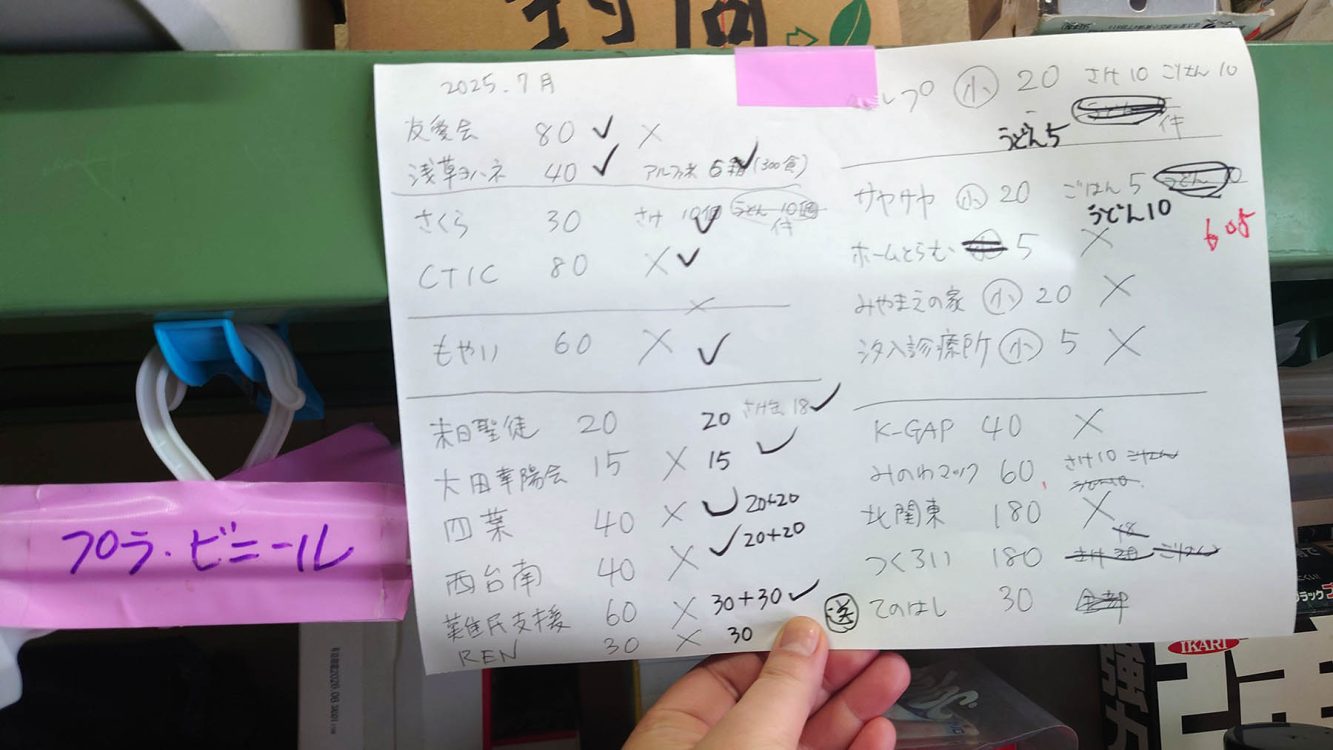 封筒
2025.7月
友愛会 80 ✓ ×
浅草ヨハネ 40 ✓ アルファ米 6箱 ✓ (300食)
さくら 30 さけ 10個 ✓ うどん 10個
件
CTIC 80 × ✓
×
もやい 60 × ✓
末日聖徒 20 20 さけ缶 18 ✓
大田華陽会 15 × 15 ✓
四葉 40 × ✓ 20+20
西台南 40 × ✓ 20+20
難民支援 60 × 30+30 ✓
REN 30 × 30
ルプ 小 20 さけ10 ごはん10
うどん5 件
サヤサヤ 小 20 ごはん5 うどん 10
うどん10
605
ホームとらむ 5 ×
みやまえの家 小 20 ×
汐入診療所 小 5 ×
K-GAP 40 ×
みのわマック 60 さけ10 ごはん
うどん10
北関東 180 ×
18
つくろい 180 さけ ごはん
送 てのはし 30 全部
プラ・ビニール
IKARI
強力